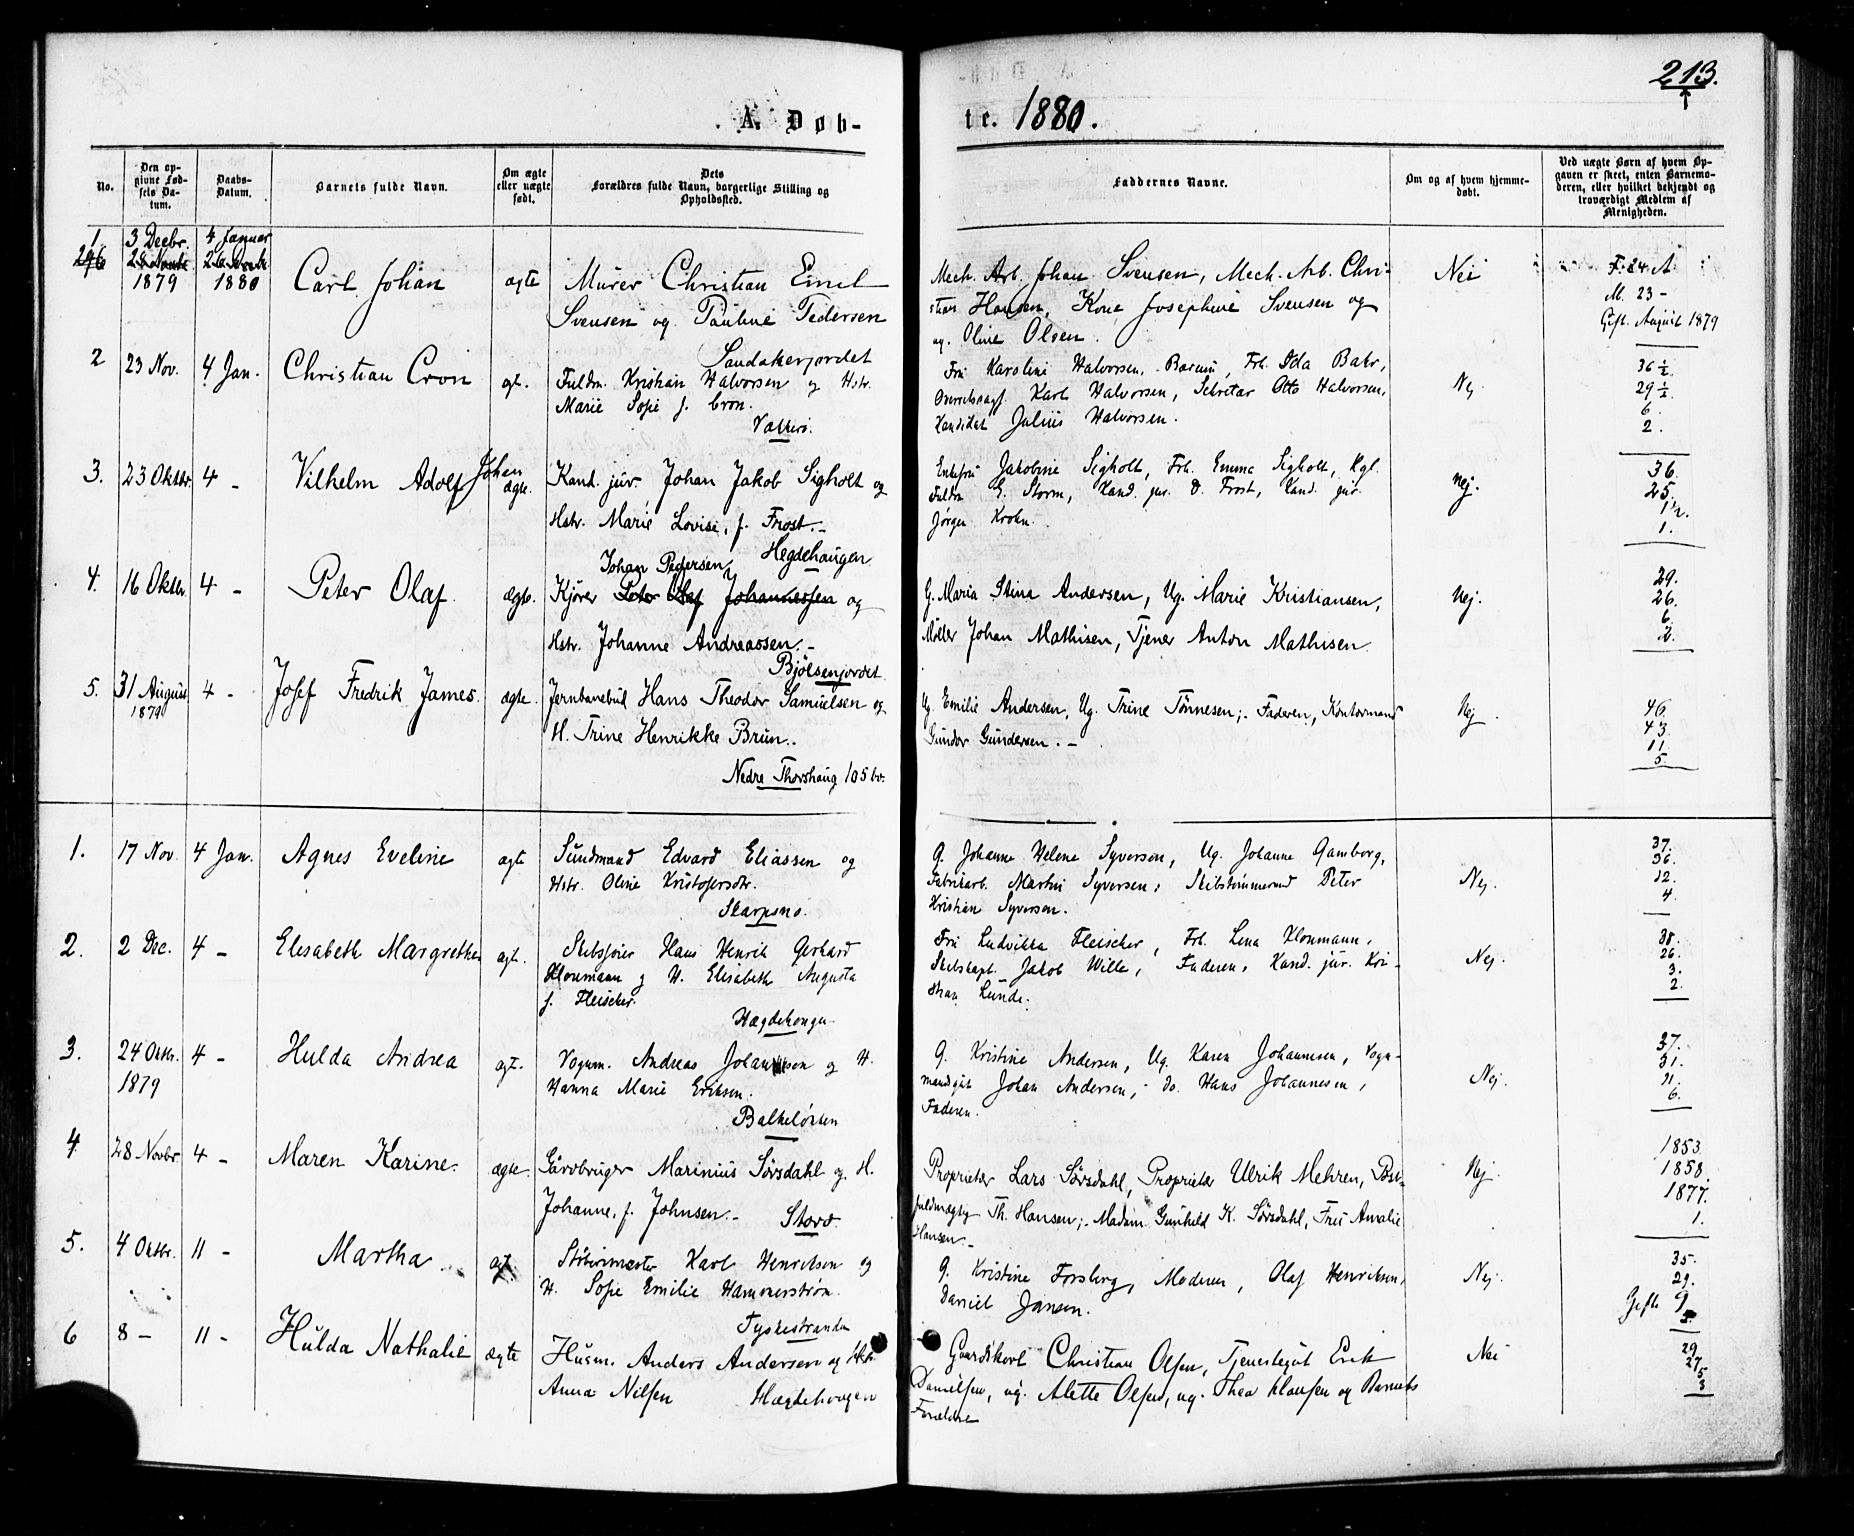 213.
A. Døb-
te. 1880.
No.
Den op-
givne Fød-
sels Da-
tum.
Daabs-
Datum.
Barnets fulde Navn.
Om ægte
eller uægte
født.
Dets
Forældres fulde Navn, borgerlige Stilling og
Opholdssted.
Faddernes Navne.
Om og af hvem hjemme-
døbt.
Ved uægte Børn af hvem Op-
gaven er skeet, enten Barnemo-
deren, eller hvilket bekjendt og
troværdigt Medlem af
Menigheden.
1 3 Decbr. 4 Januar
1879 1880 Carl Johan ægte Murer Christian Emil
Svensen og Pauline Pedersen
Sandakerjordet
Mech. Arb. Johan Svensen, Mech. Arb. Chri-
stian Hansen, Kone Josephine Svensen og
ug. Oline Olsen.
Nei
F. 24 A
M. 23 -
Gift. August 1879
2 23 Nov. 4 Jan. Christian Cron ægt. Fuldm. Kristian Halvorsen og Hstr.
Marie Sofie f. Cron.
Vækkerø.
Fru Karoline Halvorsen, Bærum, Frk. Ida Bahr,
Karl Halvorsen, Sekretær Otto Halvorsen,
Kandidat Julius Halvorsen.
Nej
36 ½
29 ½
6.
2.
3. 23 Oktbr. 4 - Vilhelm Adolf Johan ægte. Kand. jur. Johan Jakob Sigholt og
Hstr. Marie Lovise, f. Frost.-
Hegdehaugen
Enkefru Jakobine Sigholt, Frk. Emma Sigholt, Kgl.
Fuldm. E. Storm, Kand. jur. D. Frost, Kand. jur.
Jørgen Krohn.
Nej.
36.
25.
1½.
1.
4. 16 Oktbr. 4 - Peter Olaf ægte. Johan Pedersen
Kjører Peter Olaf Johannessen og
Hstr. Johanne Andreassen.-
Bjølsenjordet
G. Maria Stina Andersen, Ug. Marie Kristiansen,
Møller Johan Mathisen, Tjener Anton Mathisen.
Nej.
29.
26.
6.
2.
5. 31 August 4 - Josef Fredrik James. ægte. Jernbanebud Hans Theodor Samuelsen og
1879
H. Trine Henrikke Brun.
Nedre Thorshaug 105 b.
Ug. Emilie Andersen, Ug. Trine Tønnesen;. Faderen, Kontormand
Gundor Gundersen. -
Nej.
46.
43.
11.
5.
1. 17 Nov. 4 Jan. Agnes Eveline ægte Sundmand Edvard Eliassen og
Hstr. Oline Kristofersdtr.
Skarpsno.
G. Johanne Helene Syversen, Ug. Johanne Gamborg,
Fabrikarb. Martin Syversen, Skibstømmermd Peter
Kristian Syversen.
Nej.
37.
36.
12.
4.
2. 2 Dec. 4 - Elisabeth Margrethe ægt. Skibsfører Hans Henrik Gerhard
Klonmann og H. Elisabeth Augusta
f. Fleischer.
Hægdehougen
Fru Ludvikka Fleischer, Frk. Lena Klonmann,
Skibskapt. Jakob Wille, Faderen, Kand. jur. Kri-
stian Lunde.
Nej.
38.
26.
3.
2.
3. 24 Oktbr. 4 - Hulda Andrea ægt. Vognm. Andreas Johansen og H.
1879
Hanna Marie Eriksen.
Balkeløkken
G. Kristine Andersen, Ug. Karen Johannesen, Vogn-
mandsgut Johan Andersen, do. Hans Johannesen,
Faderen.
Nej.
37.
31.
11.
6.
4. 28 Novbr. 4 - Maren Karine. ægte. Gårdbruger Marinius Sørsdahl og H.
Johanne, f. Johnsen.-
Storø.
Proprietær Lars Sørsdahl, Proprietær Ulrik Mehren, Post-
fuldmægtig Th. Hansen;. Madam Gunhild K. Sørsdahl, Fru Amalie
Hansen.-
Nej.
1853.
1858.
1877.
1.
5. 4 Oktbr. 11 - Martha ægt. Støberimester Karl Henriksen og
H. Sofie Emilie Hammerstrøm.
Tyskestranden
G. Kristine Forsberg, Moderen, Olaf Henriksen,
Daniel Jansen.
Nej.
35.
29.
Gift 9.
6 8 - 11 - Hulda Nathalie ægte Husm. Anders Andersen og Hstr.
Anna Nilsen Hægdehougen
Gaardskarl Christian Olsen, Tjenestegut Erik
Danielsen, ug. Alette Olsen, ug. Thea Klausen og Barnets
Forældre
Nei
29
27
5
3